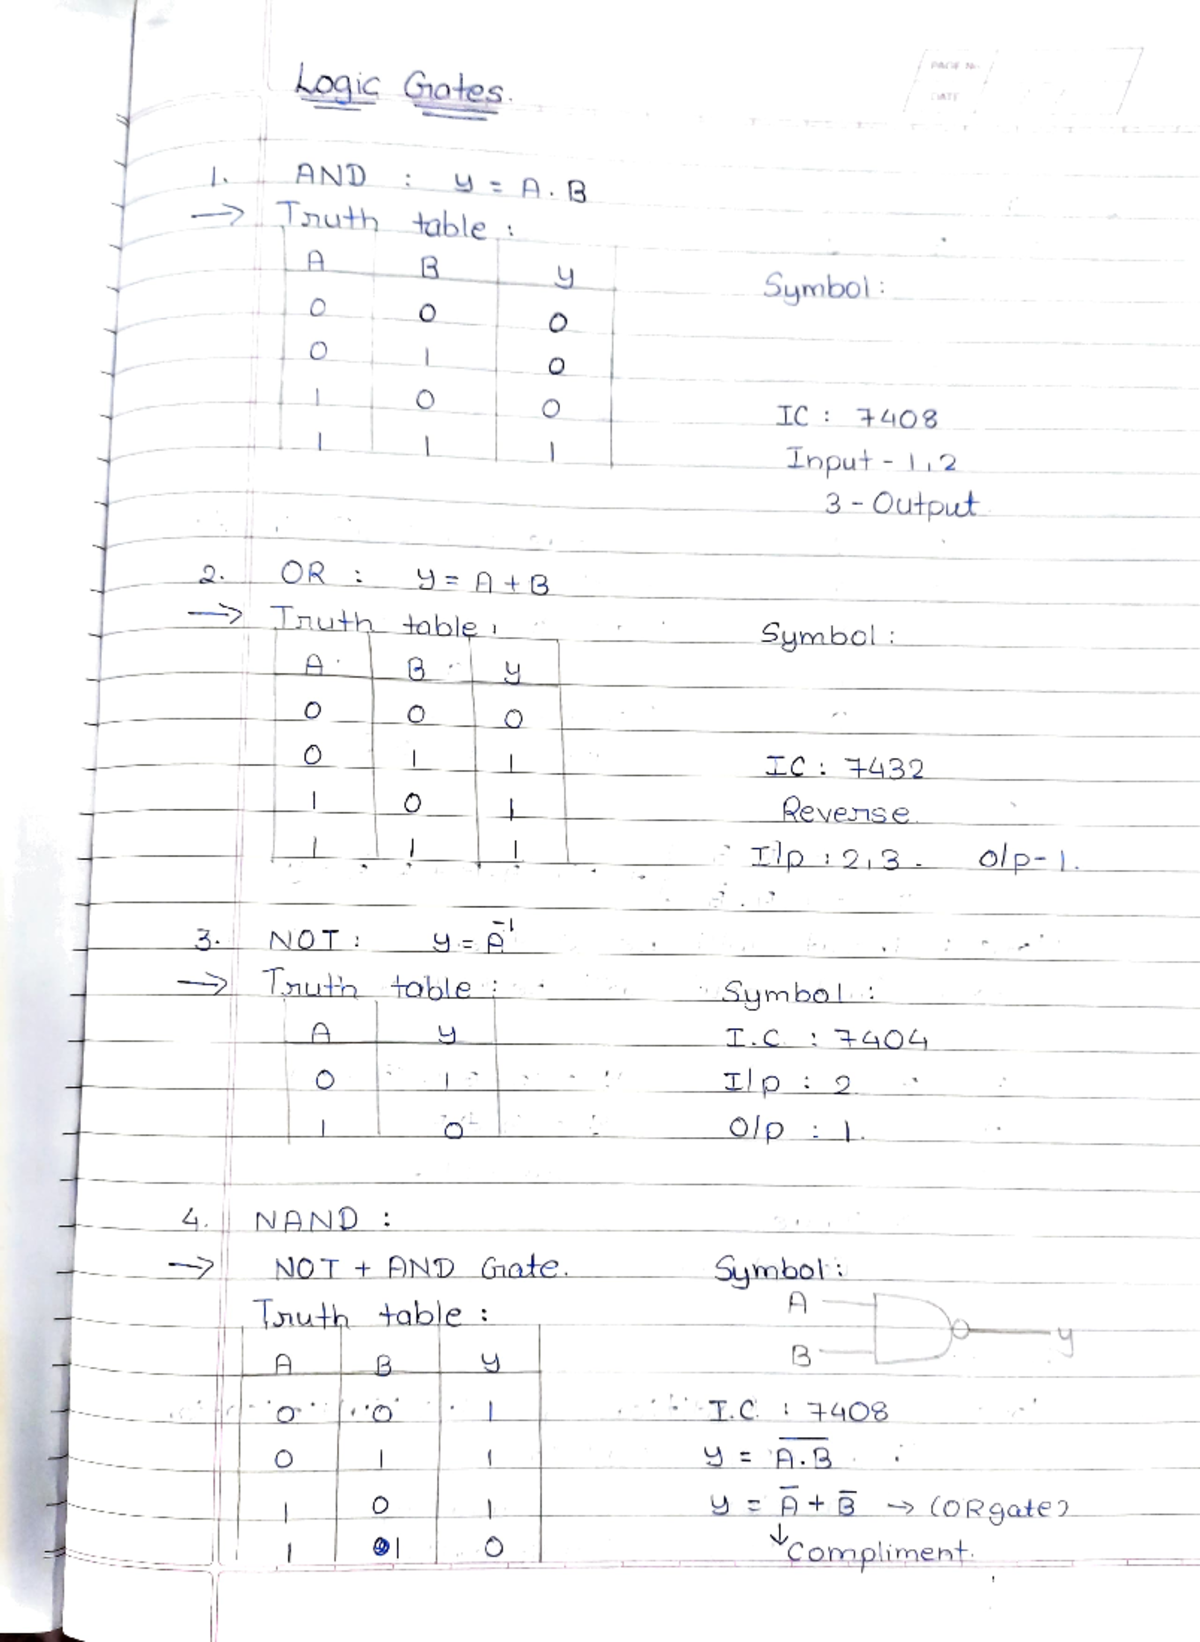 PAGE No.
DATE
Logic Gates.
1. AND : y = A . B
→ Truth table :
A B y
Symbol :
0 0 0
0 1 0
1 0 0
IC : 7408
1 1 1
Input - 1,2
3 - Output
2. OR : y = A + B
→ Truth table :
Symbol :
A B y
0 0 0
0 1 1
IC : 7432
1 0 1
Reverse
1 1 1
I/p : 2,3. O/p - 1.
3. NOT : y = A̅¹
→ Truth table :
Symbol :
A y
I.C : 7404
0 1
I/p : 2
1 0
O/p : 1.
4. NAND :
→ NOT + AND Gate.
Symbol :
Truth table :
A
B
y
A B y
0 0 1
I.C. : 7408
0 1 1
y = A̅.̅B̅
1 0 1
y = A̅ + B̅ → (OR gate)
1 1 0
↓ Compliment.